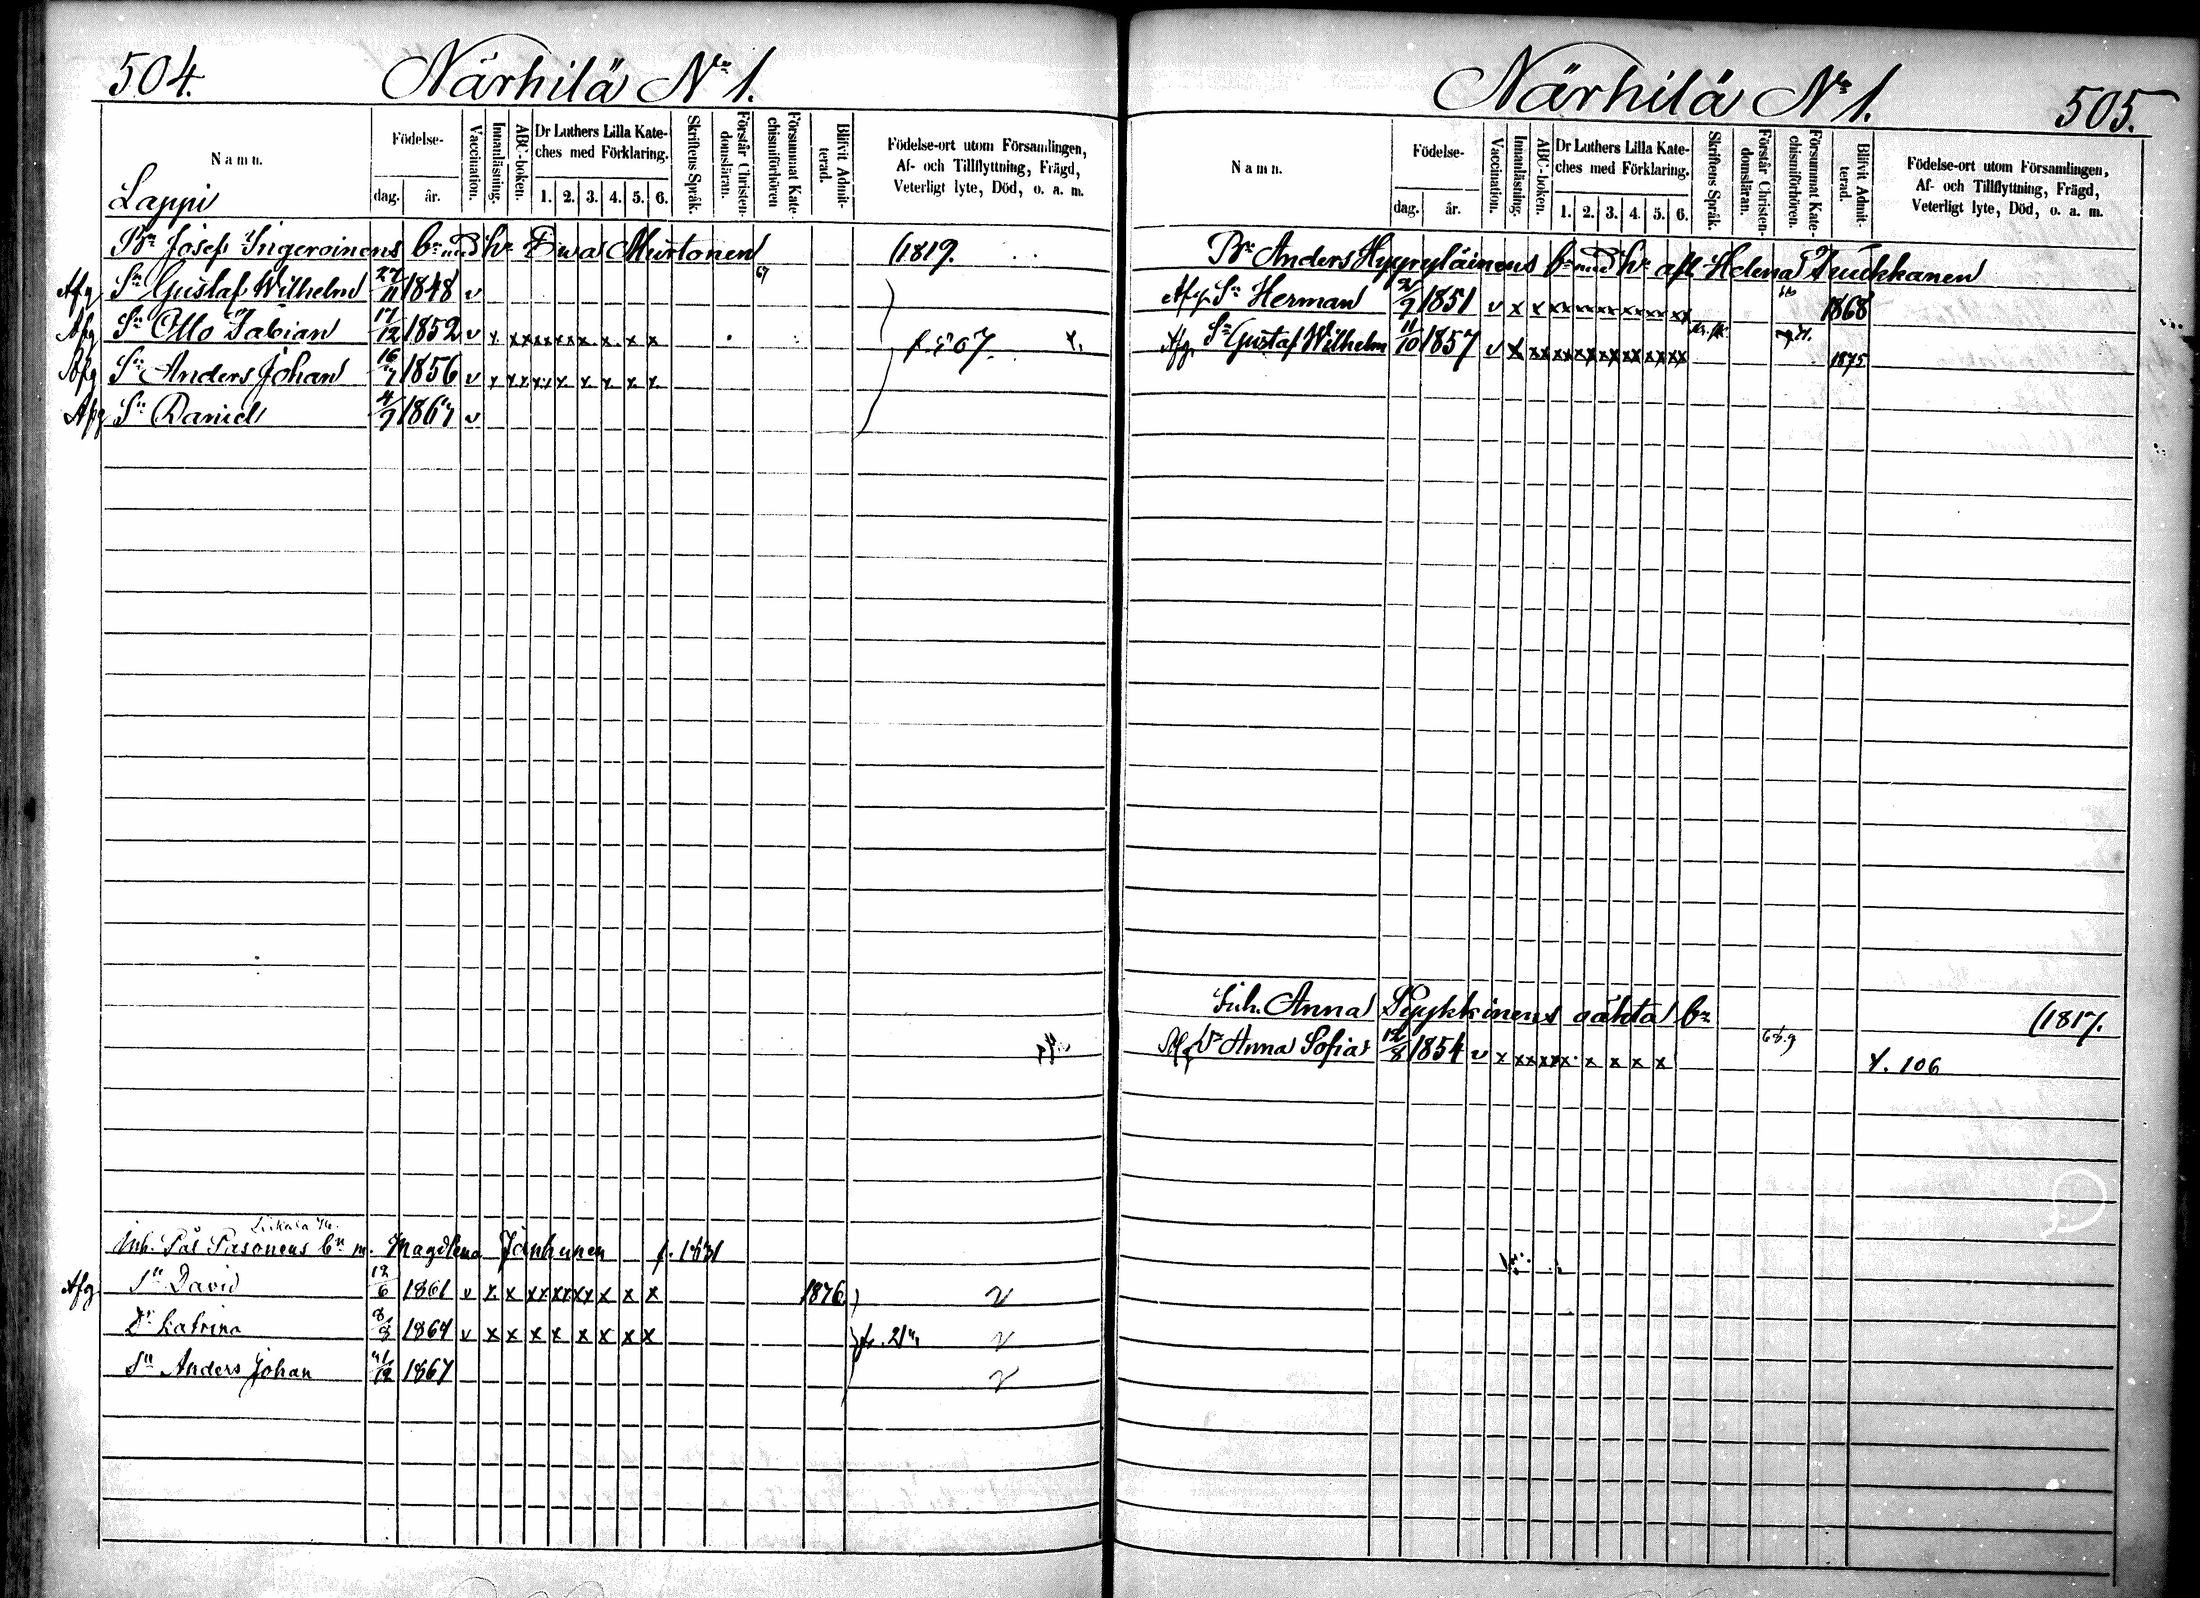 504. Närhilä No 1.
Namn.
Födelse-
dag. år.
Vaccination.
Innanläsning.
ABC-boken.
Dr Luthers Lilla Kate-
ches med Förklaring.
1. 2. 3. 4. 5. 6.
Skriftens Språk.
Förstår Christen-
domsläran.
Försummat Kate-
chismiförhören
Blifvit Admit-
terad.
Födelse-ort utom Församlingen,
Af- och Tillflyttning, Frägd,
Veterligt lyte, Död, o. a. m.
Lappi
Bn Josef Ingeroinens bn med hu Eva Murtonen (1819.
Afg Sn Gustaf Wilhelm 27/11 1848 v 67
Afg Sn Otto Fabian 17/12 1852 v x xx xx xx x x x x f. 507.
Afg Sn Anders Johan 16/7 1856 v x xx xx x x x x x
Afg Sn Daniel 4/9 1867 v
Inh. Pås Pasonens bn m. Magdlena Janhunen f. 1831
Afg Sn David 12/6 1861 v x x xx xx xx x x x 1876 v
Dr Katrina 8/3 1864 v x x x x x x x x fr. 21 v
Sn Anders Johan 21/12 1867 v
Närhilä No 1. 505.
Namn.
Födelse-
dag. år.
Vaccination.
Innanläsning.
ABC-boken.
Dr Luthers Lilla Kate-
ches med Förklaring.
1. 2. 3. 4. 5. 6.
Skriftens Språk.
Förstår Christen-
domsläran.
Försummat Kate-
chismiförhören.
Blifvit Admit-
terad.
Födelse-ort utom Församlingen,
Af- och Tillflyttning, Frägd,
Veterligt lyte, Död, o. a. m.
Bn Anders Hyyryläinens bn med hu afl Helena Tuukkanen
Afg. Sn Herman 2/9 1851 v x x xx xx xx xx xx xx 1868
Afg. Sn Gustaf Wilhelm 11/10 1857 v x xx xx xx xx xx xx xx 1875
Inh. Anna Pyykkinens oäkta bn (1817.
Afg Dr Anna Sofia 12/8 1854 v x xx xx x x x x x 68.9 f. 106